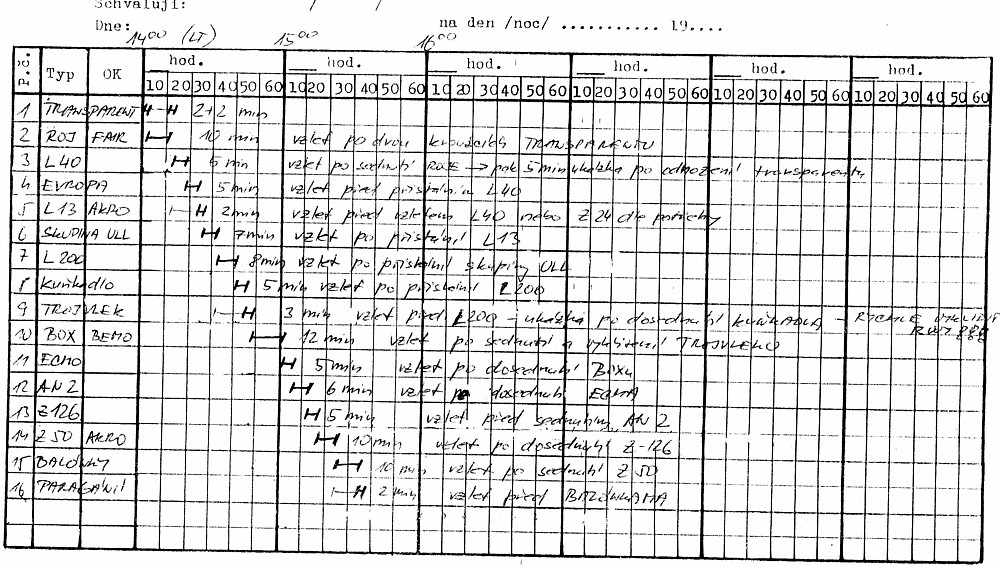 Schvalují: / /
Dne: na den /noc/ ........... 19....
14⁰⁰ (LT) 15⁰⁰ 16⁰⁰
p.č. Typ OK hod. hod. hod. hod. hod. hod.
10 20 30 40 50 60 10 20 30 40 50 60 10 20 30 40 50 60 10 20 30 40 50 60 10 20 30 40 50 60 10 20 30 40 50 60
1 TRANSPARENT 2+2 min
2 ROJ FAIR 10 min vzlet po dvou kroužcích TRANSPARENTU
3 L40 6 min vzlet po sednutí ROJE → pak 5 min ukázka po odhození transparentu
4 EVROPA 5 min vzlet před přistáním L40
5 L13 AKRO 2 min vzlet před vzletem L40 nebo Z24 dle potřeby
6 SKUPINA ULL 7 min vzlet po přistání L13
7 L200 8 min vzlet po přistání skupiny ULL
8 Kuňkadlo 5 min vzlet po přistání L200
9 TROJVLEK 3 min vzlet před L200 - ukázka po dosednutí KUŇKADLA - RYCHLE
10 BOX BEMO 12 min vzlet po sednutí a vyklizení TROJVLEKU
11 ECHO 5 min vzlet po dosednutí Boxu
12 AN 2 6 min vzlet po dosednutí ECHA
13 Z126 5 min vzlet před sednutím AN 2
14 Z 50 AKRO 10 min vzlet po dosednutí Z-126
15 BALÓNKY 10 min vzlet po sednutí Z 50
16 PARAGÁNI 2 min vzlet před BALÓNKAMA